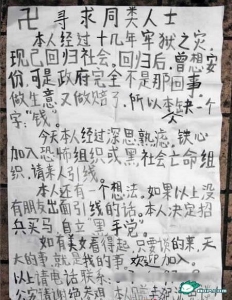 卍 寻求同类人士
本人经过十几年牢狱之灾,
现已回归社会,回归后,曾想安
份,可是政府完全不是那回事
做生意又做赔了,所以本缺一个
字:钱。
今天本人经过深思熟虑,铁心
加入恐怖组织或黑社会亡命组
织,请来人引线。
本人还有一个想法,如果以上没
有朋友出面引线的话,本人决定招
兵买马,自立"黑手党"。
如有朋友看得起,只需谈的来,天
大的事,就是我的事,欢迎加入。
以上请电话联系: